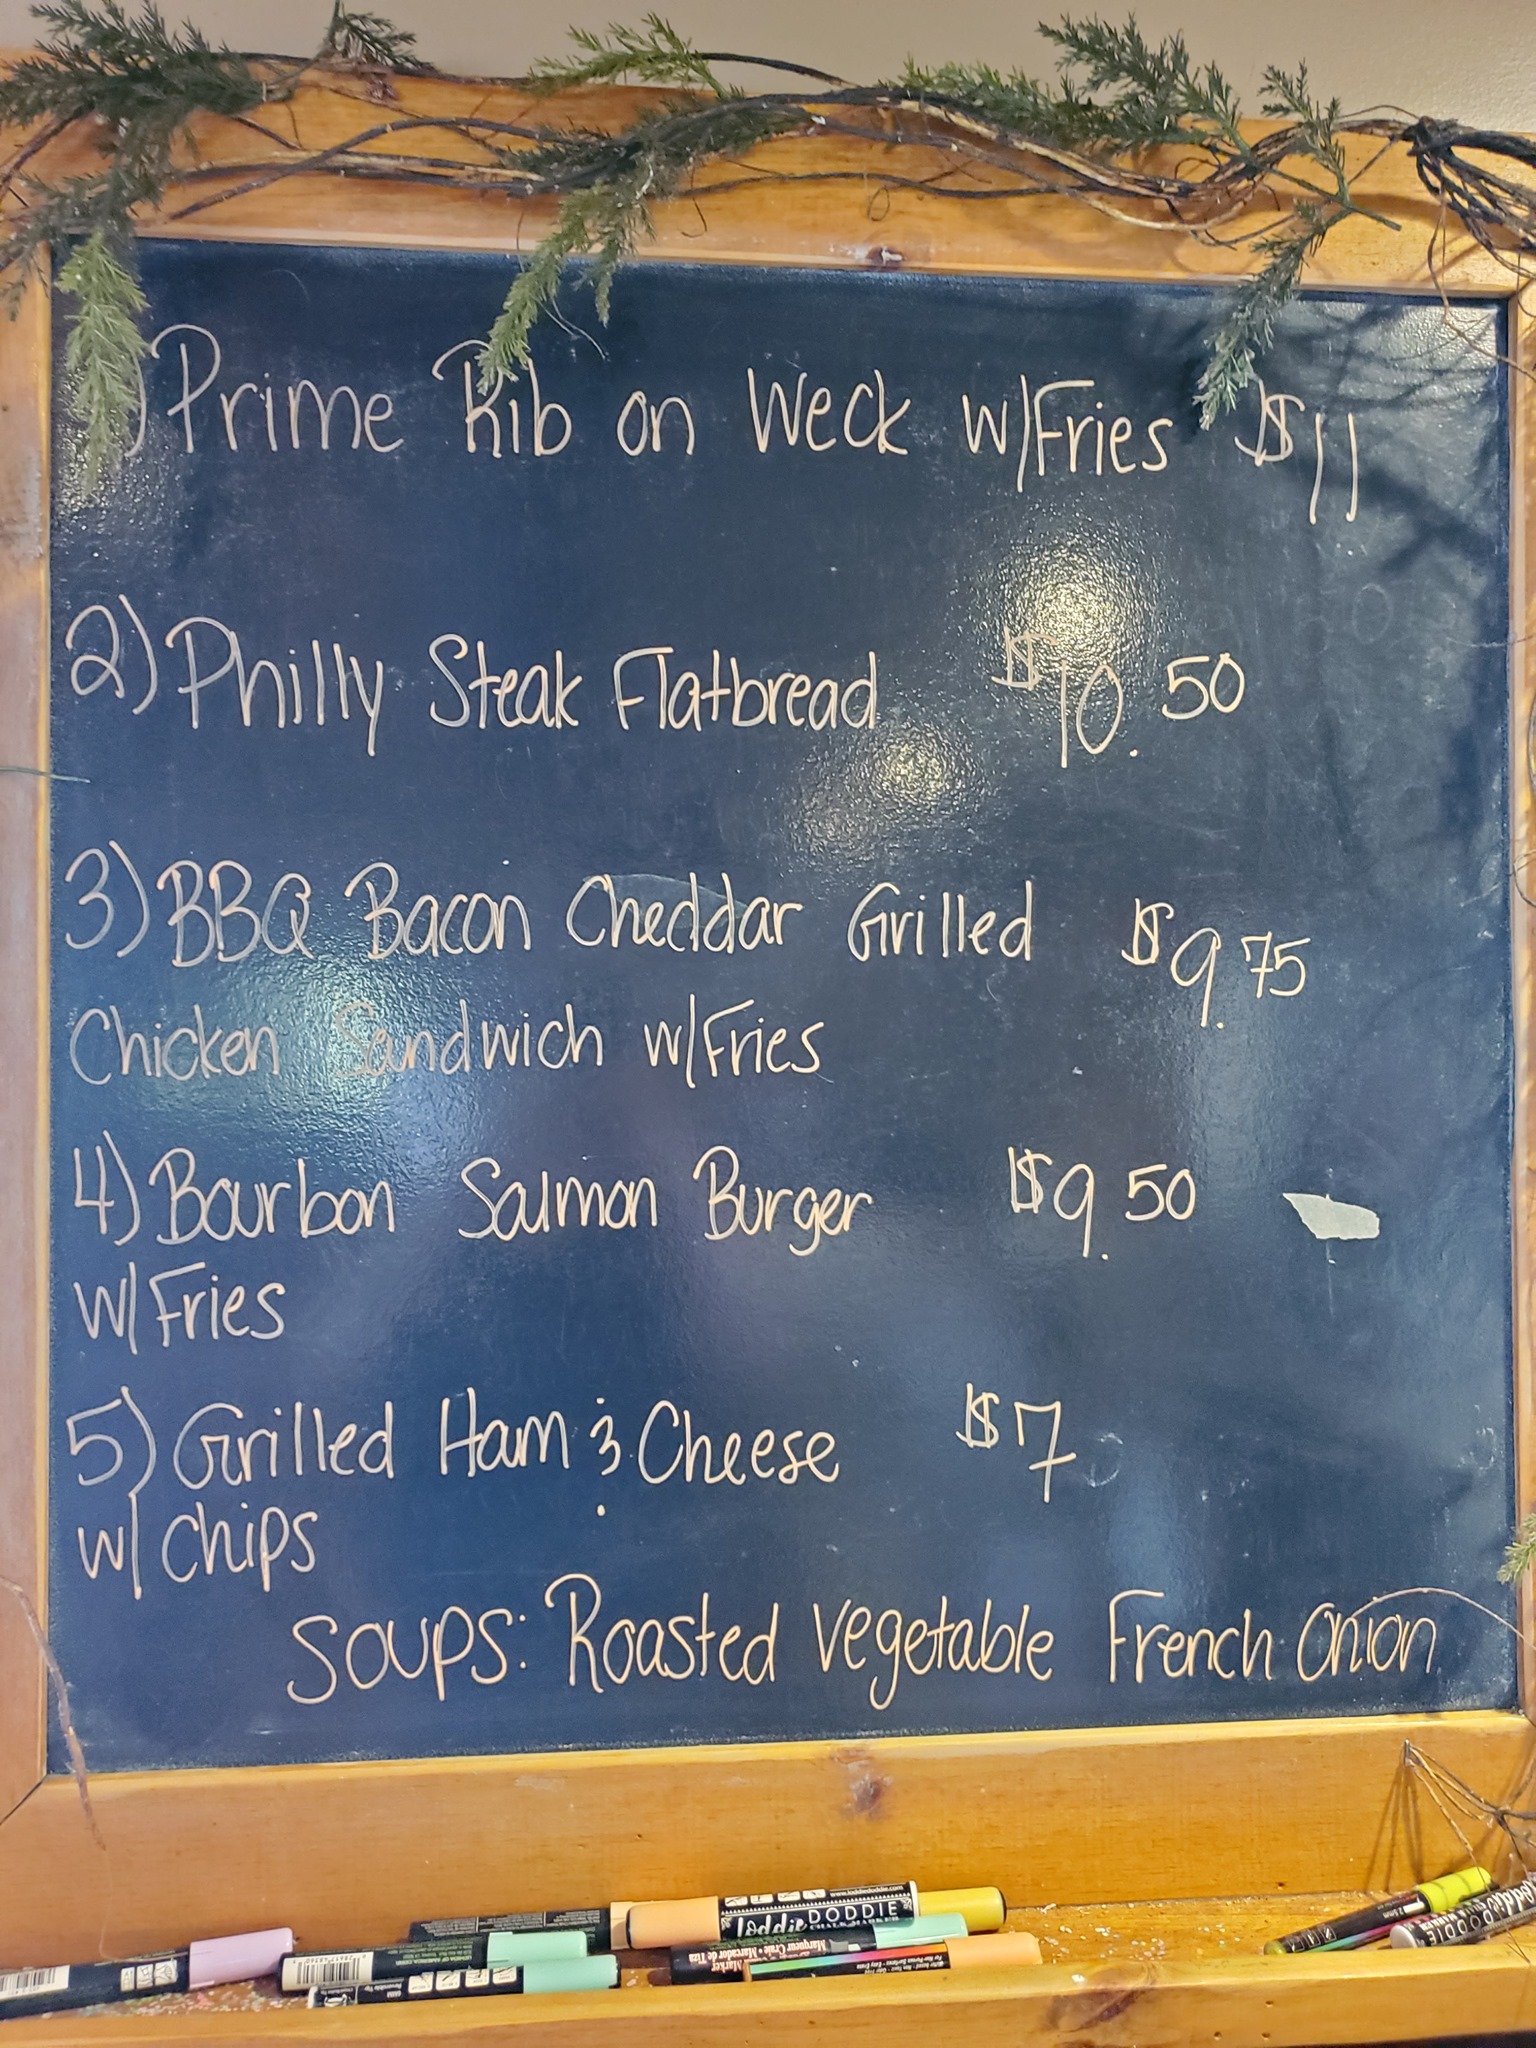 ) Prime Rib on Weck w/Fries $11
2) Philly Steak Flatbread $10.50
3) BBQ Bacon Cheddar Grilled $9.75
Chicken Sandwich w/Fries
4) Bourbon Salmon Burger $9.50
w/Fries
5) Grilled Ham & Cheese $7
w/ Chips
Soups: Roasted Vegetable French Onion
loddie DODDIE
Marker
DODDIE